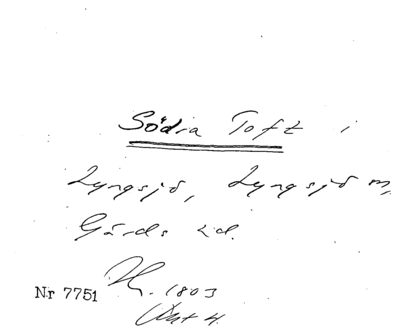 Södra Toft i
Lyngsjö, Lyngsjö m,
Gärds hd.
1803
Nr 7751
Akt 4.